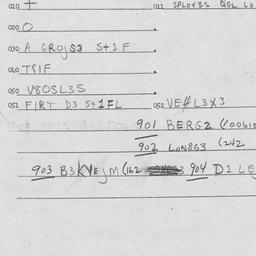 010 t 011 SPLOV3S QGL LO
020 O
030 A GROJS3 S+1F
060 T81F
050 V8OSL3S
051 FIRT D3 S+1FL 052 VE#L3X3
901 BERG2 (0061
902 LON8G3 (242
903 B3KVEJM (162 904 D1 LE